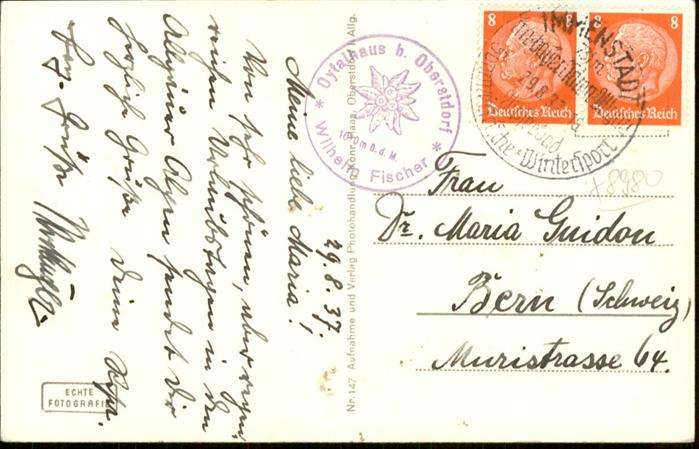 29.8.37.
Meine liebe Maria!
Von sehr schönen, aber regen
reichen Urlaubstagen in den
Allgäuer Alpen sendet Dir
herzliche Grüße Deine
Grüße
ECHTE
FOTOGRAFIE
Nr. 147 Aufnahme und Verlag Photohandlung Konr. Haas, Oberstdorf i. Allg.
* Oytalhaus b. Oberstdorf *
1010m ü. d. M.
Wilhelm Fischer
8
Deutsches Reich
8
Deutsches Reich
IMMENSTADT
29.8.
Wintersport
+8980
Frau
Dr. Maria Guidon
Bern (Schweiz)
Muristrasse 64.